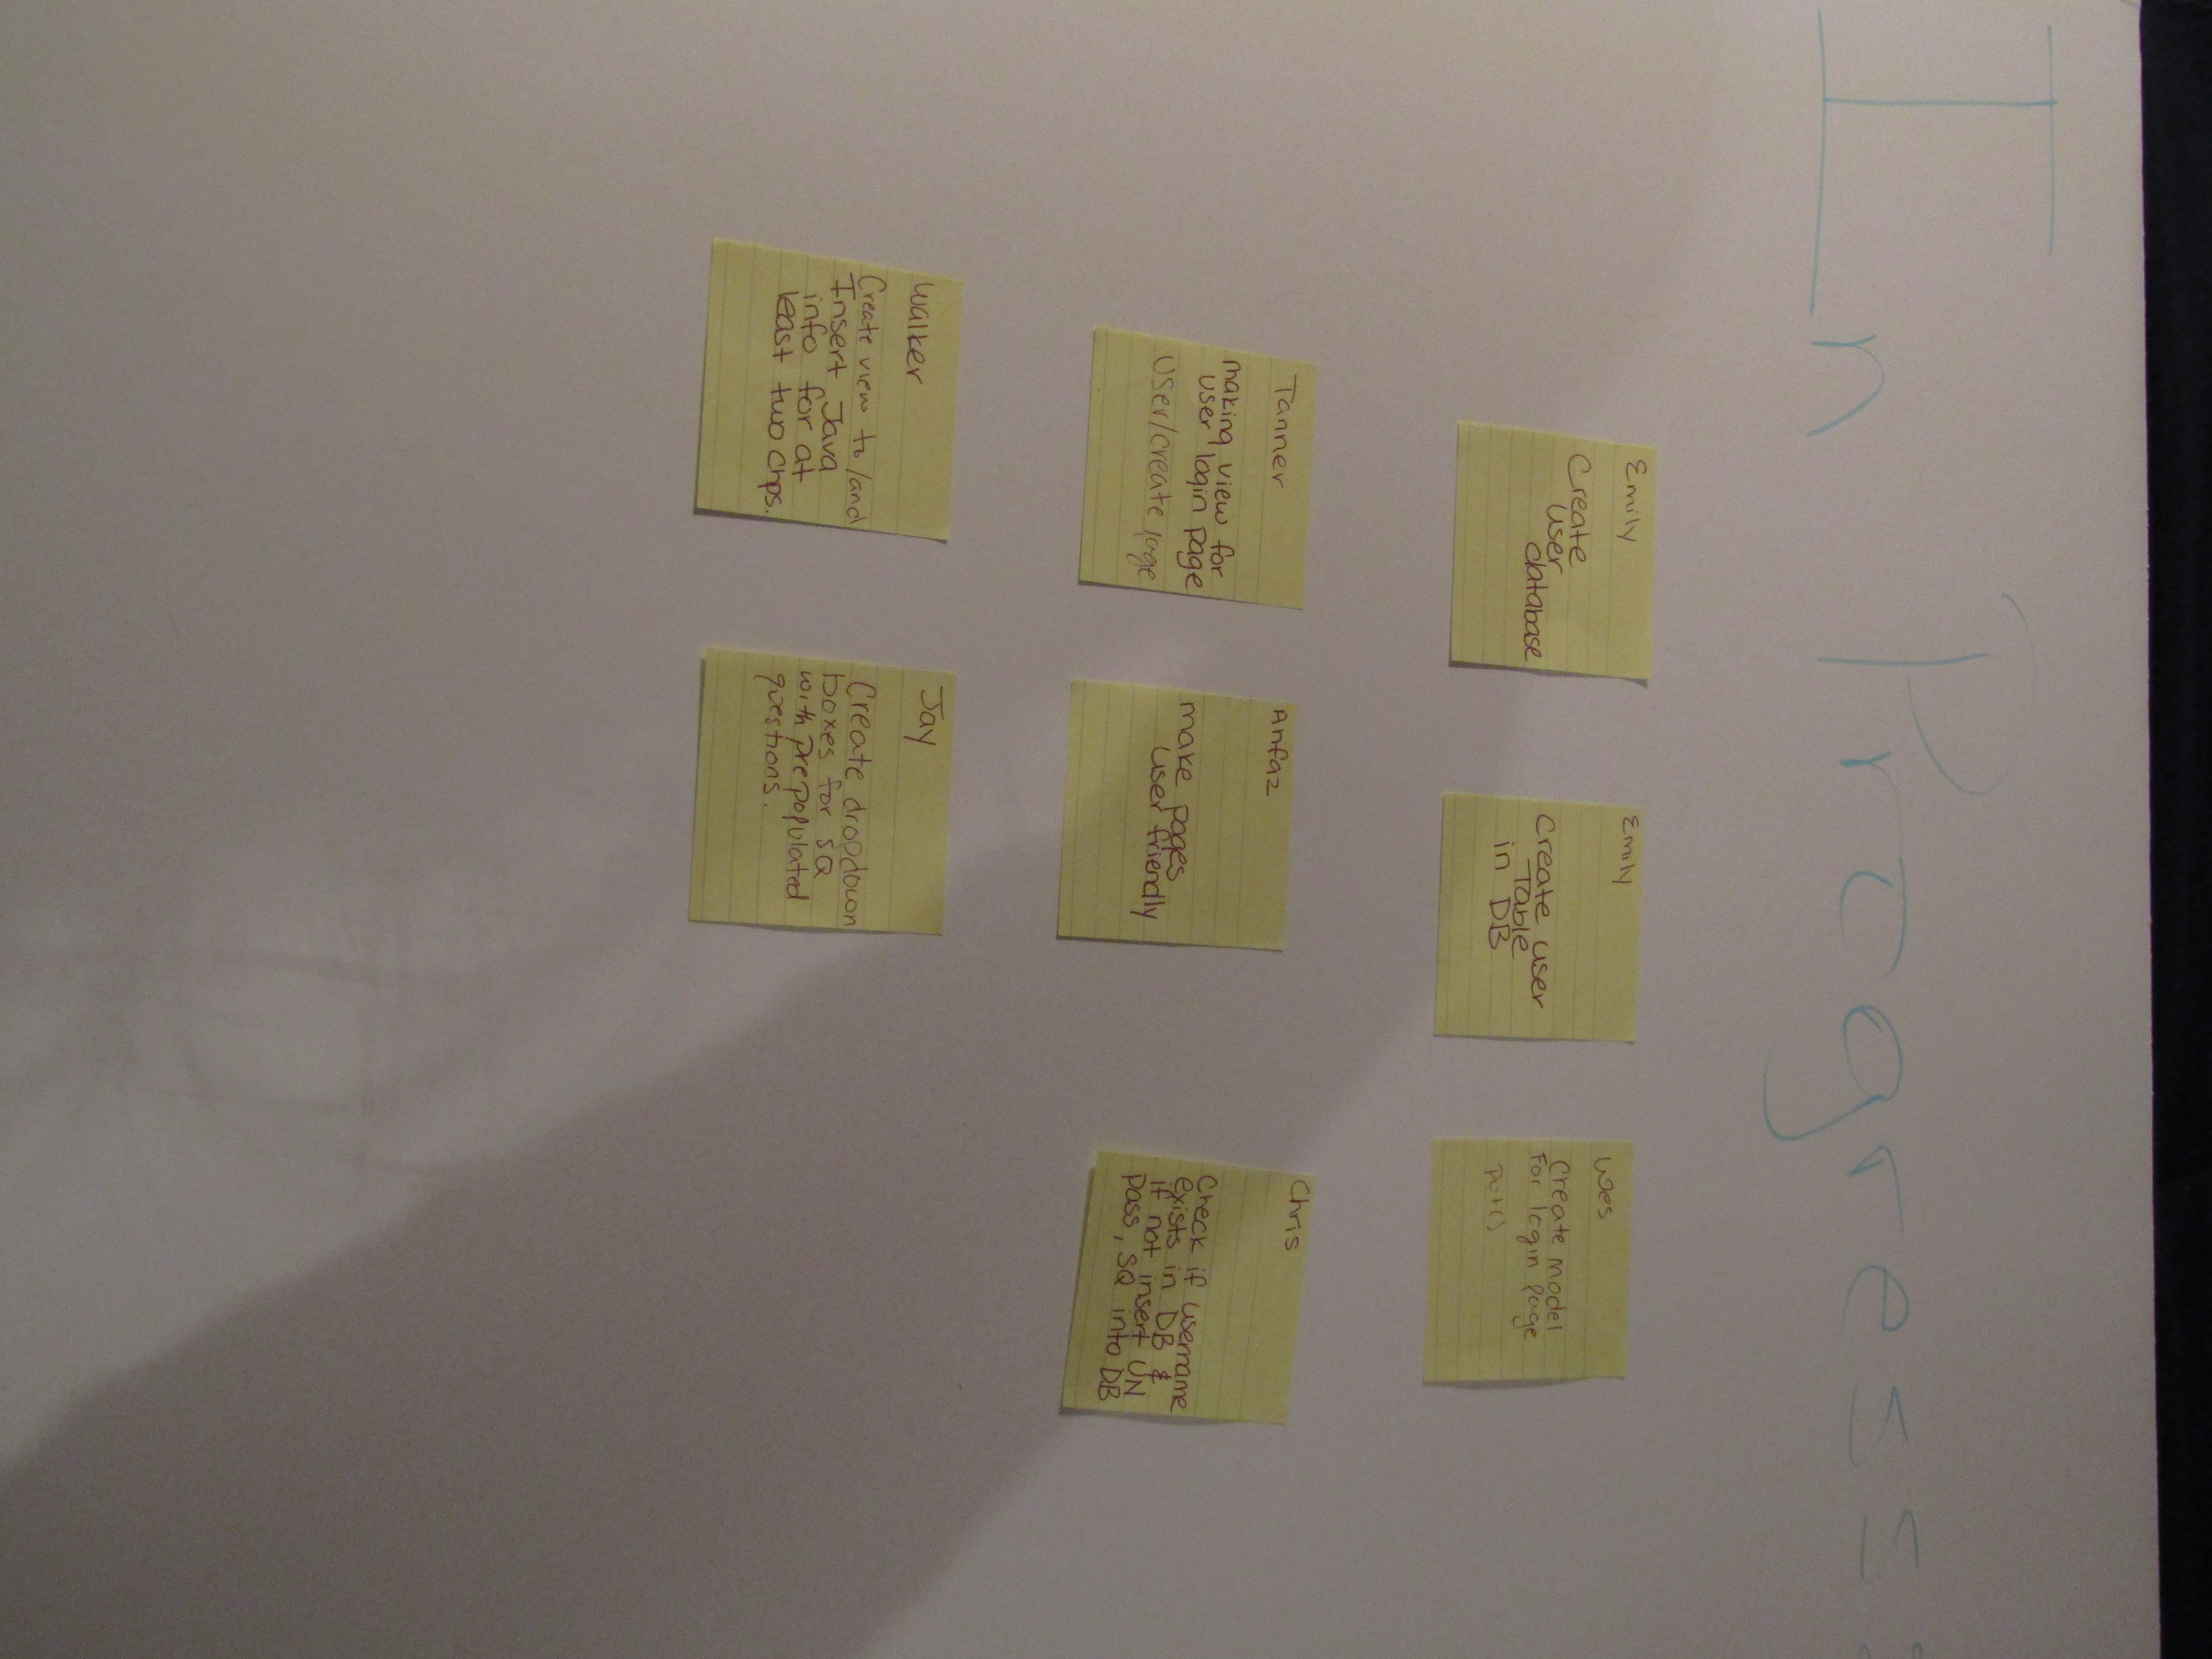 In Progress:
Emily
Create
user
database
Emily
Create user
Table
in DB
Wes
Create model
For login page
put()
Tanner
making view for
user login page
user/create page
Anfaz
make pages
user friendly
Chris
Check if username
exists in DB &
if not insert UN
pass, SQ into DB
Walker
Create view to/and
Insert Java
info for at
least two chps.
Jay
Create dropdown
boxes for SQ
with prepopulated
questions.